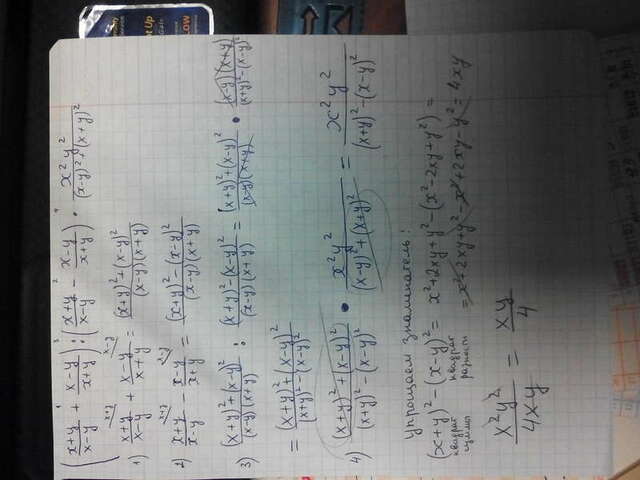 ((x+y)/(x-y) + (x-y)/(x+y)) : ((x+y)/(x-y) - (x-y)/(x+y)) · x²y²/((x-y)²+(x+y)²)
1) (x+y)/(x-y) + (x-y)/(x+y) = ((x+y)²+(x-y)²)/((x-y)(x+y))
2) (x+y)/(x-y) - (x-y)/(x+y) = ((x+y)²-(x-y)²)/((x-y)(x+y))
3) ((x+y)²+(x-y)²)/((x-y)(x+y)) : ((x+y)²-(x-y)²)/((x-y)(x+y)) = ((x+y)²+(x-y)²)/((x-y)(x+y)) · ((x-y)(x+y))/((x+y)²-(x-y)²)
= ((x+y)²+(x-y)²)/((x+y)²-(x-y)²)
4) ((x+y)²+(x-y)²)/((x+y)²-(x-y)²) · x²y²/((x-y)²+(x+y)²) = x²y²/((x+y)²-(x-y)²)
Упрощаем знаменатель:
(x+y)²-(x-y)² = x²+2xy+y²-(x²-2xy+y²) =
квадрат суммы квадрат разности
= x²+2xy+y²-x²+2xy-y² = 4xy
x²y²/4xy = xy/4
Up
LOW